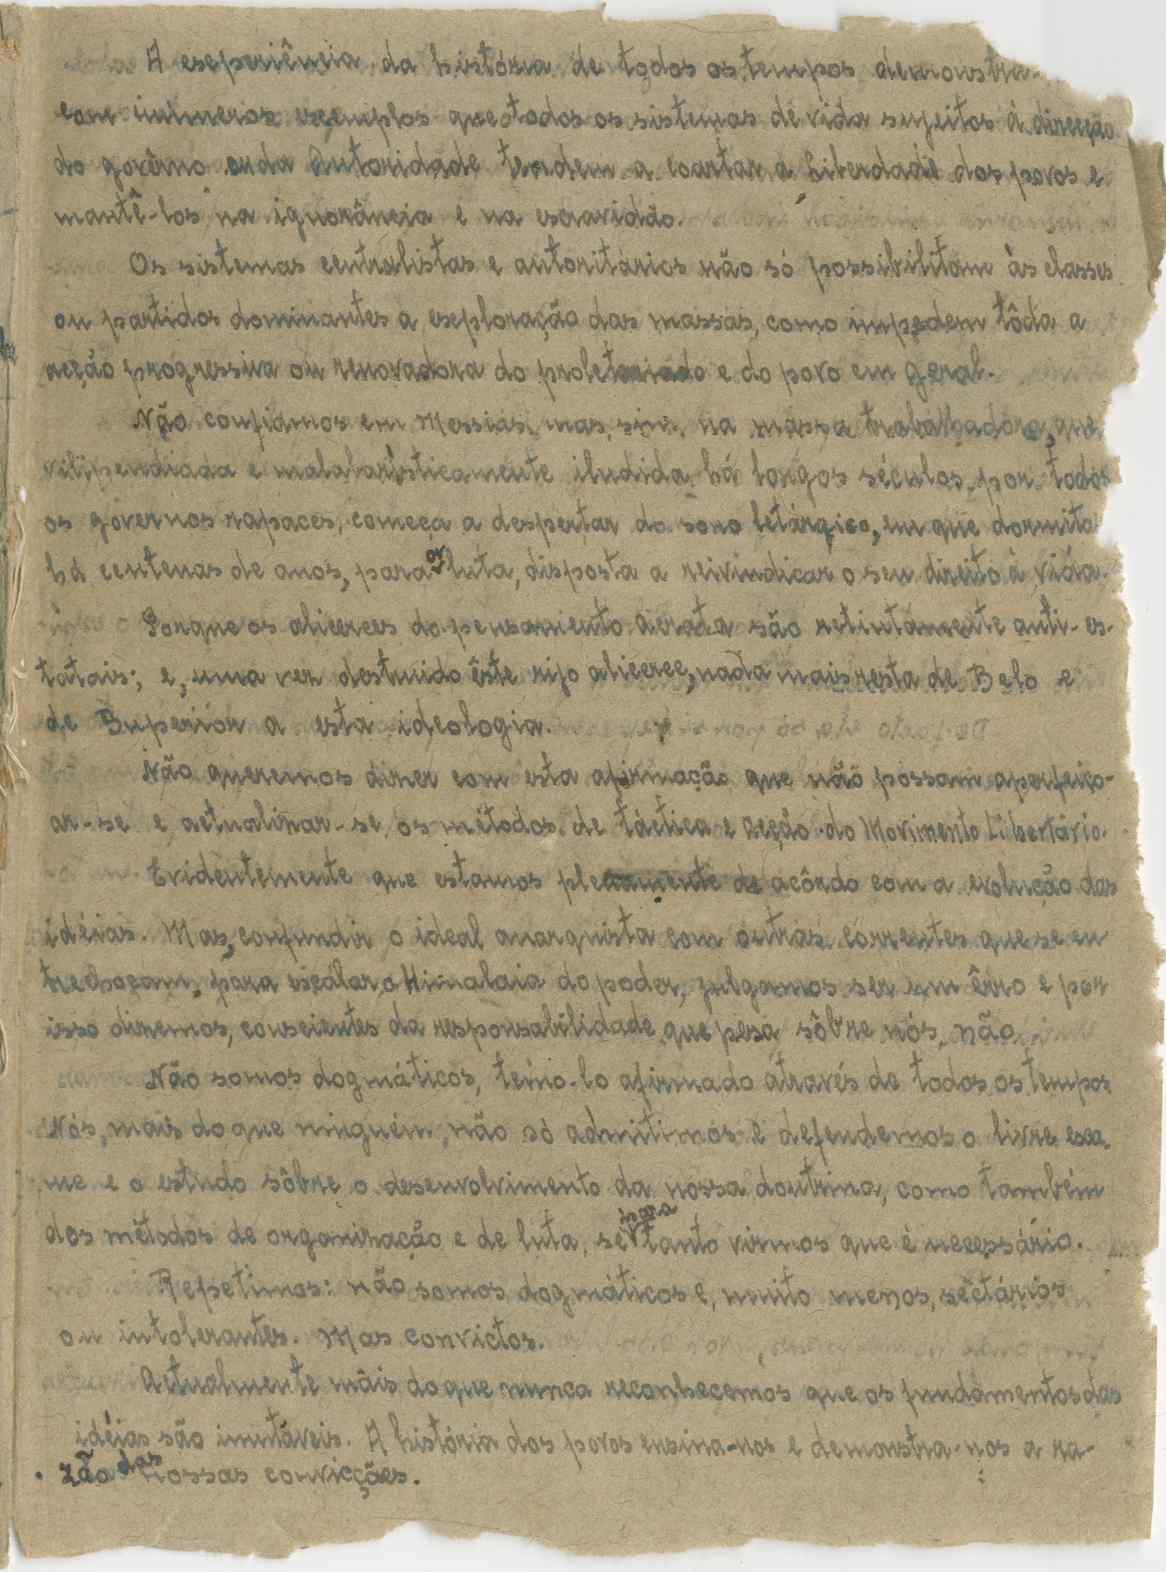 A esperiência da história de todos os tempos demonstra-
com inúmeros exemplos que todos os sistemas de vida sujeitos à direcção
do govêrno ou da Autoridade tendem a coartar a Liberdade dos povos e
mantê-los na ignorância e na escravidão.
Os sistemas centralistas e autoritários não só possibilitam às classes
ou partidos dominantes a exploração das massas, como impedem tôda a
acção progressiva ou renovadora do proletariado e do povo em geral.
Não confiamos em Messias, mas, sim, na massa trabalhadora, que
vilipendiada e malabaristicamente iludida há longos séculos, por todos
os governos rapaces, começa a despertar do sono letárgico, em que dormita
há centenas de anos, para a luta, disposta a reivindicar o seu direito à vida.
Porque os alicerces do pensamento acrata são retintamente anti-es-
tatais; e, uma vez destruido êste rijo alicerce, nada mais resta de Belo e
de Superior a esta ideologia.
Não queremos dizer com esta afirmação que não possam aperfeiço-
ar-se e actualizar-se os métodos de táctica e acção do Movimento Libertário.
Evidentemente que estamos plenamente de acôrdo com a evolução das
idéias. Mas, confundir o ideal anarquista com outras correntes que se en
trechocam, para escalar o Himalaia do poder, julgamos ser um êrro e por
isso diremos, conscientes da responsabilidade que pesa sôbre nós, não.
Não somos dogmáticos, temo-lo afirmado através de todos os tempos
Nós, mais do que ninguém, não só admitimos e defendemos o livre exa-
me e o estudo sôbre o desenvolvimento da nossa doutrina, como também
dos métodos de organização e de luta, se para tanto virmos que é necessário.
Repetimos: não somos dogmáticos e, muito menos, sectários
ou intolerantes. Mas convictos.
Actualmente mais do que nunca reconhecemos que os fundamentos das
idéias são imutáveis. A história dos povos ensina-nos e demonstra-nos a ra-
zão das nossas convicções.